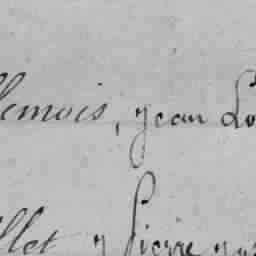 lemois, Jean Lo
llet Pierre